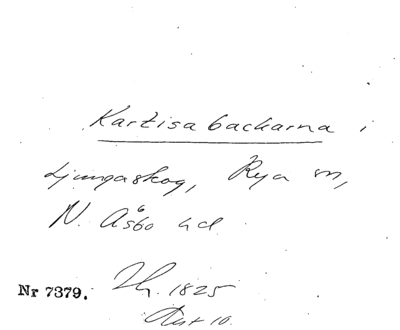 Kartisabackarna i
Ljungaskog, Rya sn,
N. Åsbo hd
Nr 7379. Th. 1825
10.